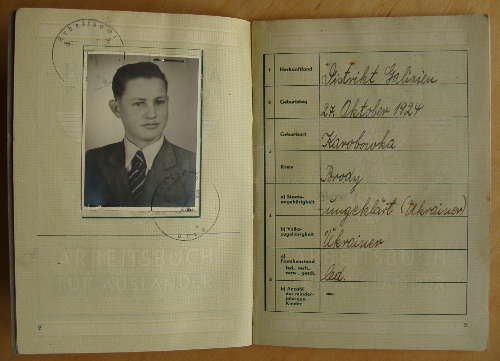 Arbeitsamt
2
EITSBUCH
AUSLÄN
1 Herkunftland Distrikt Galizien
2 Geburtstag 27. Oktober 1924
3 Geburtsort Karobowka
Kreis Brody
4 a) Staats-
angehörigkeit ungeklärt (Ukrainer)
b) Volks-
zugehörigkeit Ukrainer
5 a)
Familienstand
led., verh.,
verw., gesch. led.
b) Anzahl
der minder-
jährigen
Kinder —
BUCH
3